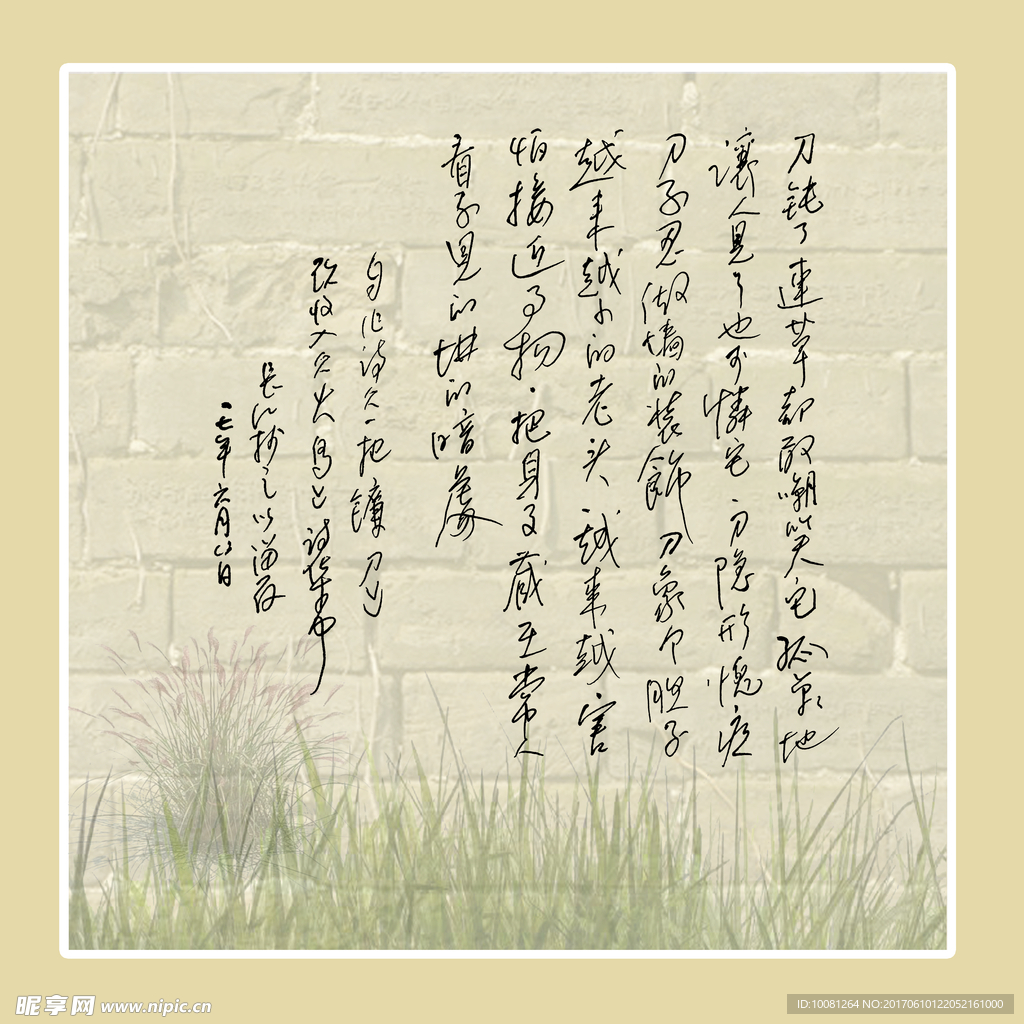 刀钝了連草都敢嘲笑它孤單地
讓人見了也可憐它、刀隐形愧疚
刀子忍做墙的裝飾刀象个胆子
越来越小的老头、越来越害
怕接近事物、把身子藏至常人
看不見的墙的暗處
自作诗之一把鏽刀
火鸟之诗集中
抄之以留存
一七年六月六日
昵享网 www.nipic.cn
ID:10081264 NO:20170610122052161000